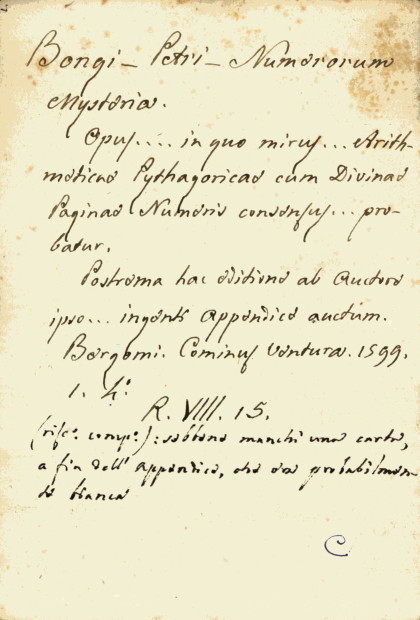 Bongi - Petri - Numerorum
Mysteria.
Opus.... in quo mirus... Arith-
meticae Pythagoricae cum Divinae
Paginae Numeris consensus... pro-
batur.
Postrema hac editione ab Auctore
ipso... ingenti Appendice auctum.
Bergomi. Cominus Ventura. 1599.
1. 4.º
R. VIII. 15.
(risc.º comp.º): sebbene manchi una carta,
a fin dell'Appendice, che era probabilmen-
te bianca
C